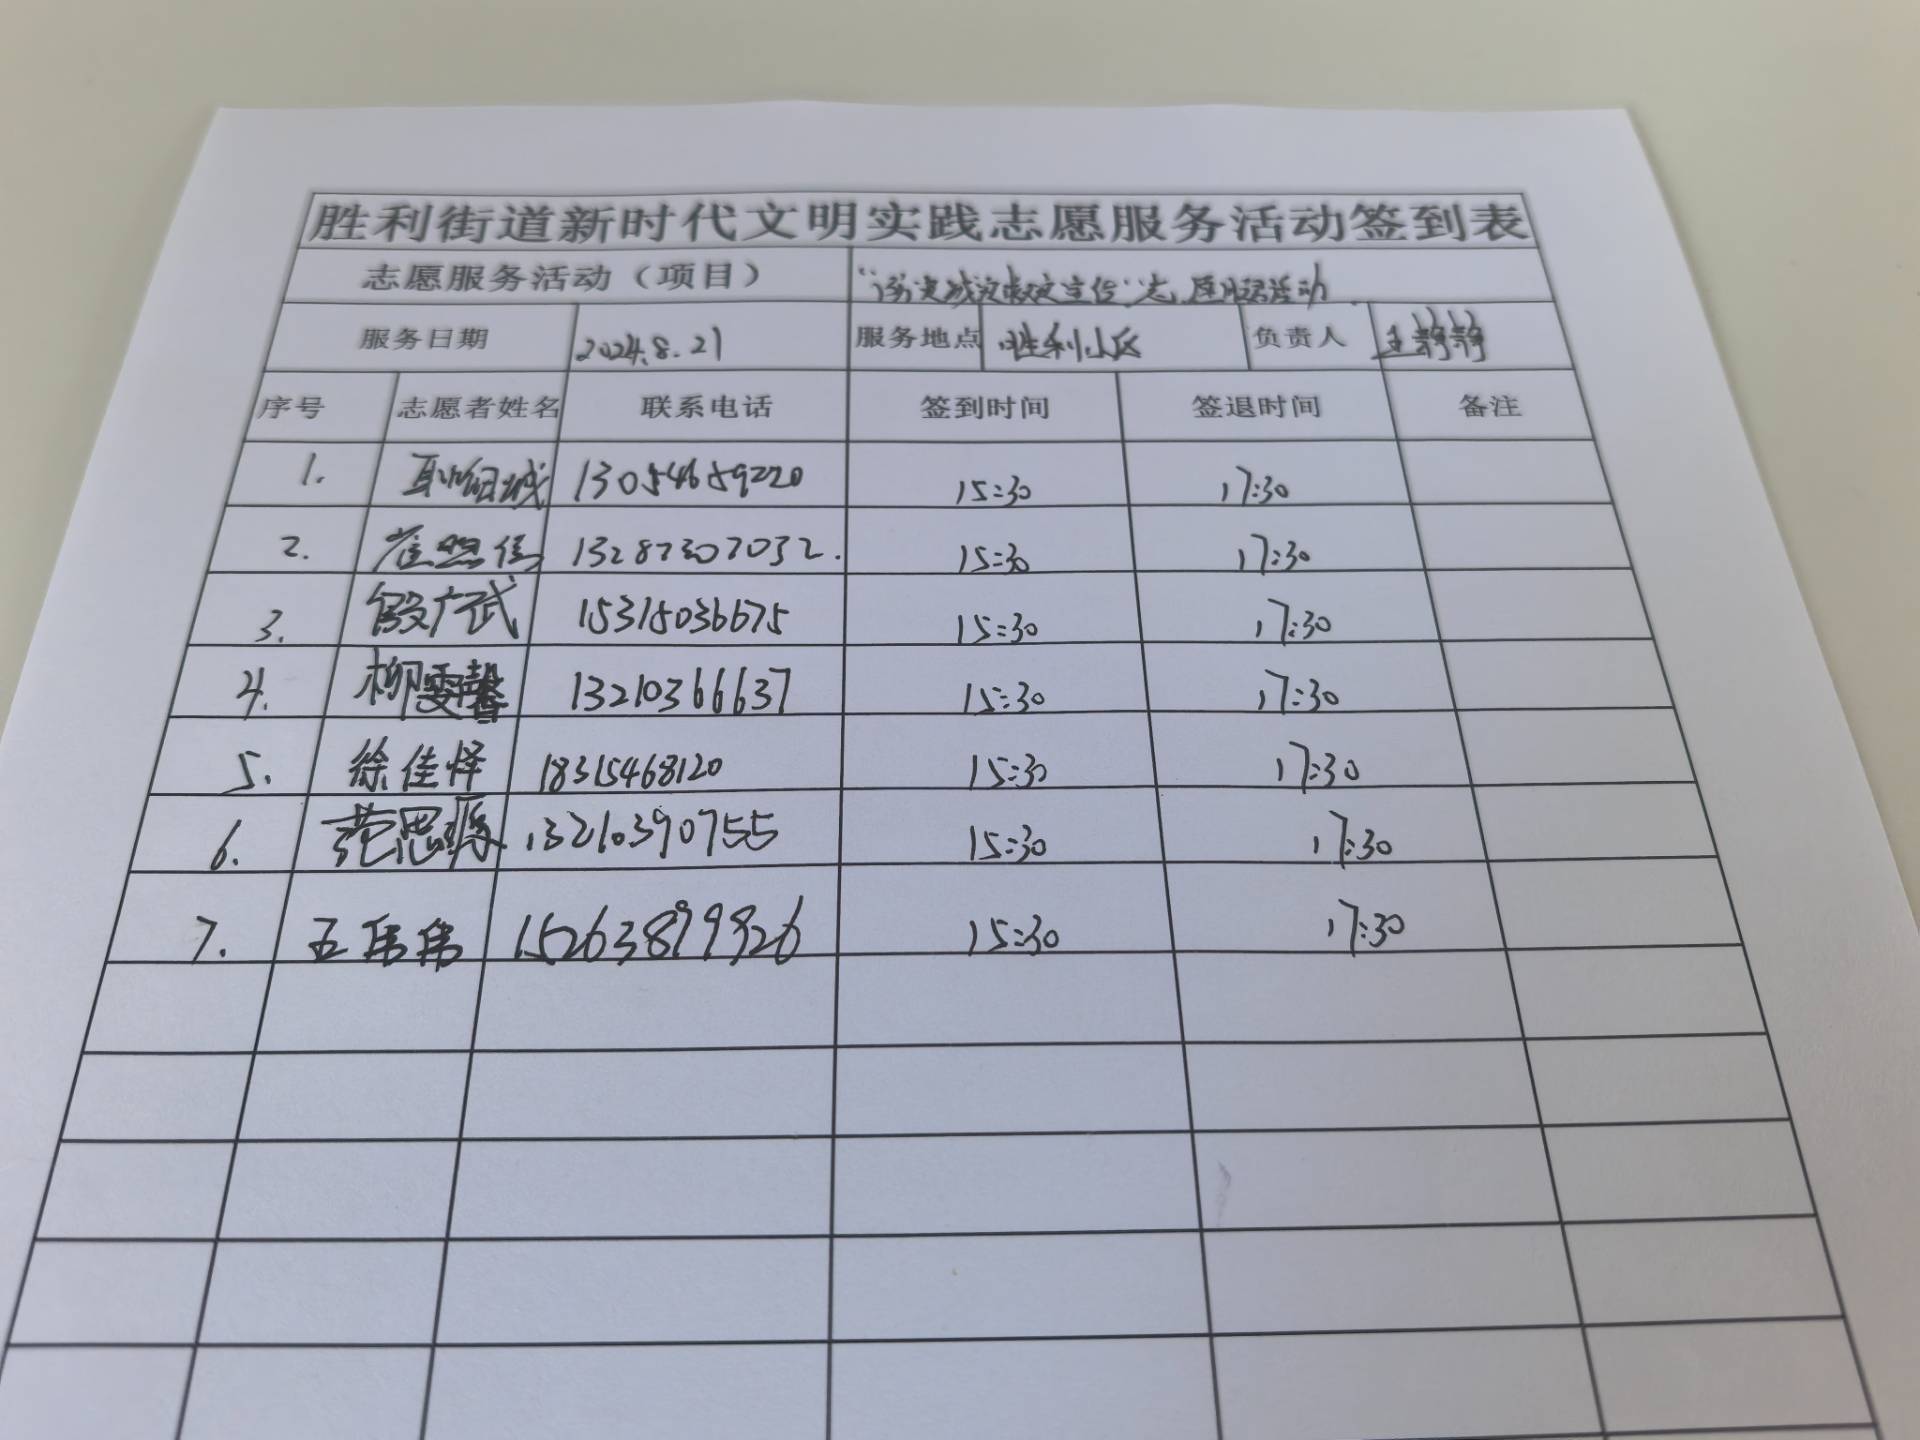 胜利街道新时代文明实践志愿服务活动签到表
志愿服务活动（项目） 志愿服务活动
服务日期 2024.8.21 服务地点 胜利小区 负责人 王静静
序号 志愿者姓名 联系电话 签到时间 签退时间 备注
1. 13054659220 15:30 17:30
2. 13287307032. 15:30 17:30
3. 殷广武 15315036675 15:30 17:30
4. 柳雯馨 13210366637 15:30 17:30
5. 徐佳怿 18315468120 15:30 17:30
6. 范思琢 13210390755 15:30 17:30
7. 王伟伟 15263899926 15:30 17:30